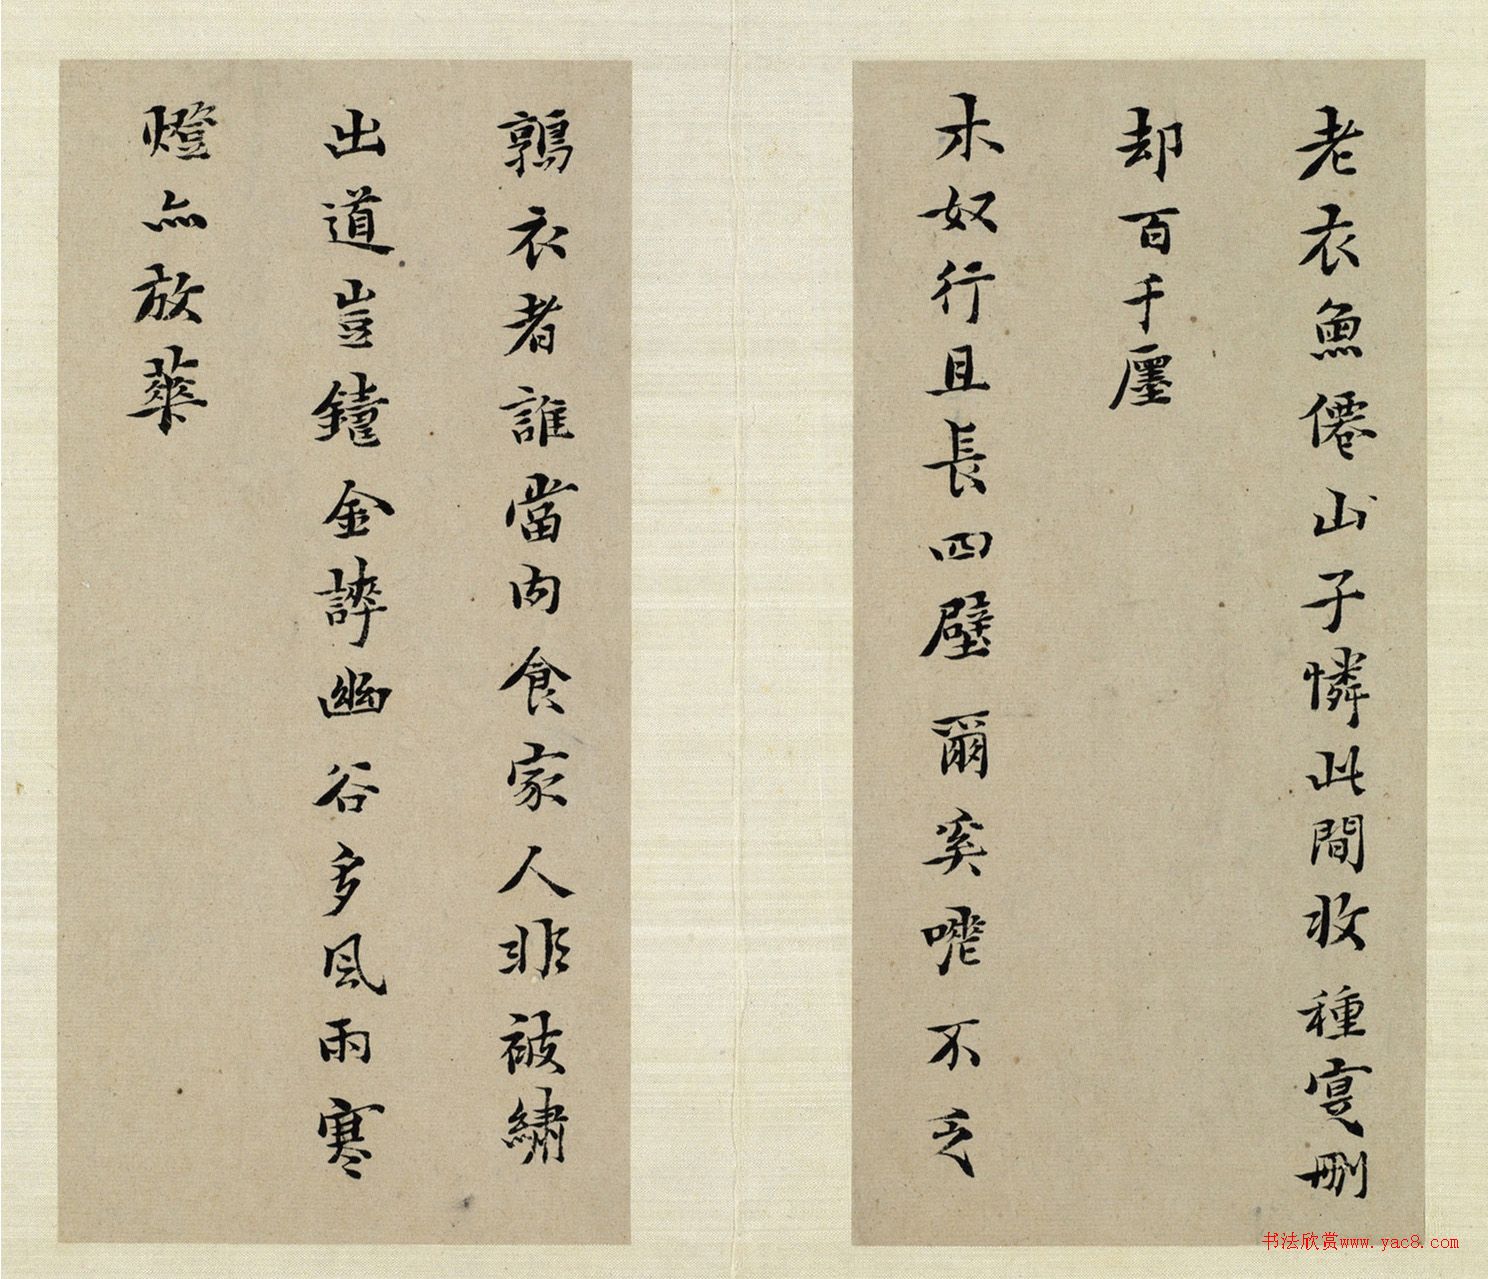 老衣魚僊山子憐此間收種寔刪
却百千廛
木奴行且長四壁爾奚嗟不乏
鶉衣者誰當肉食家人非被繡
出道豈鐘金譁幽谷多風雨寒
燈亦放華
书法欣赏www.yac8.com